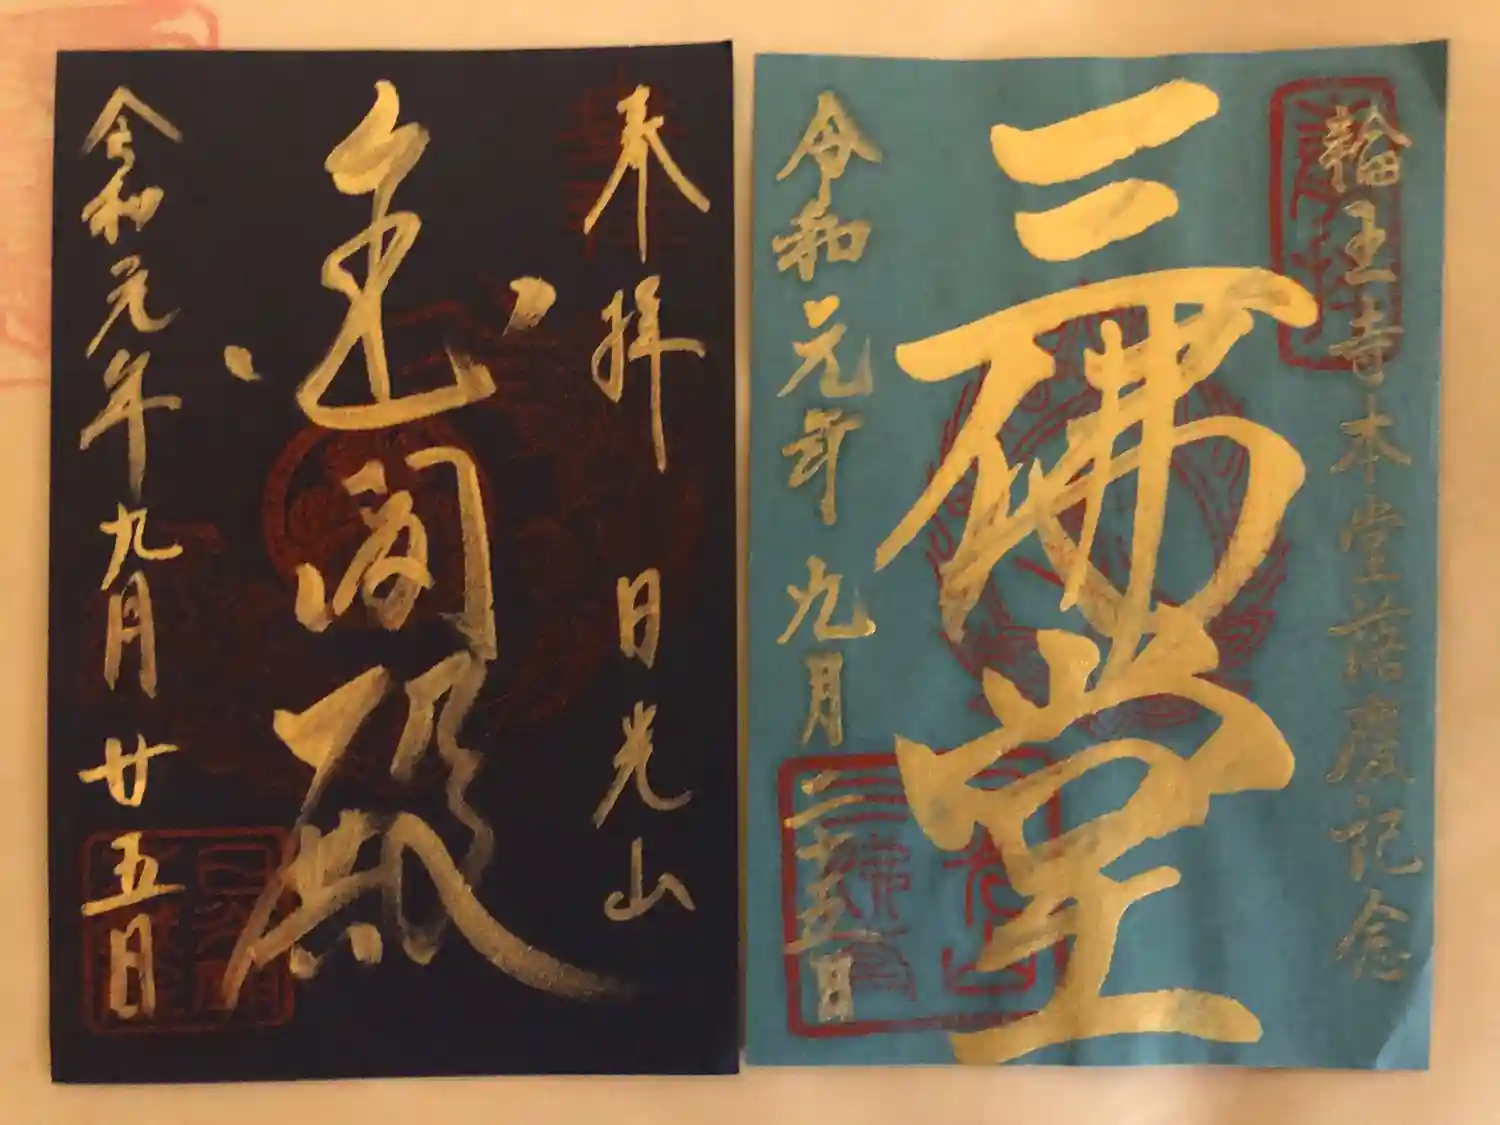 輪王寺本堂落慶記念
三佛堂
令和元年九月二十五日
奉拝 日光山
金閣殿
令和元年九月廿五日